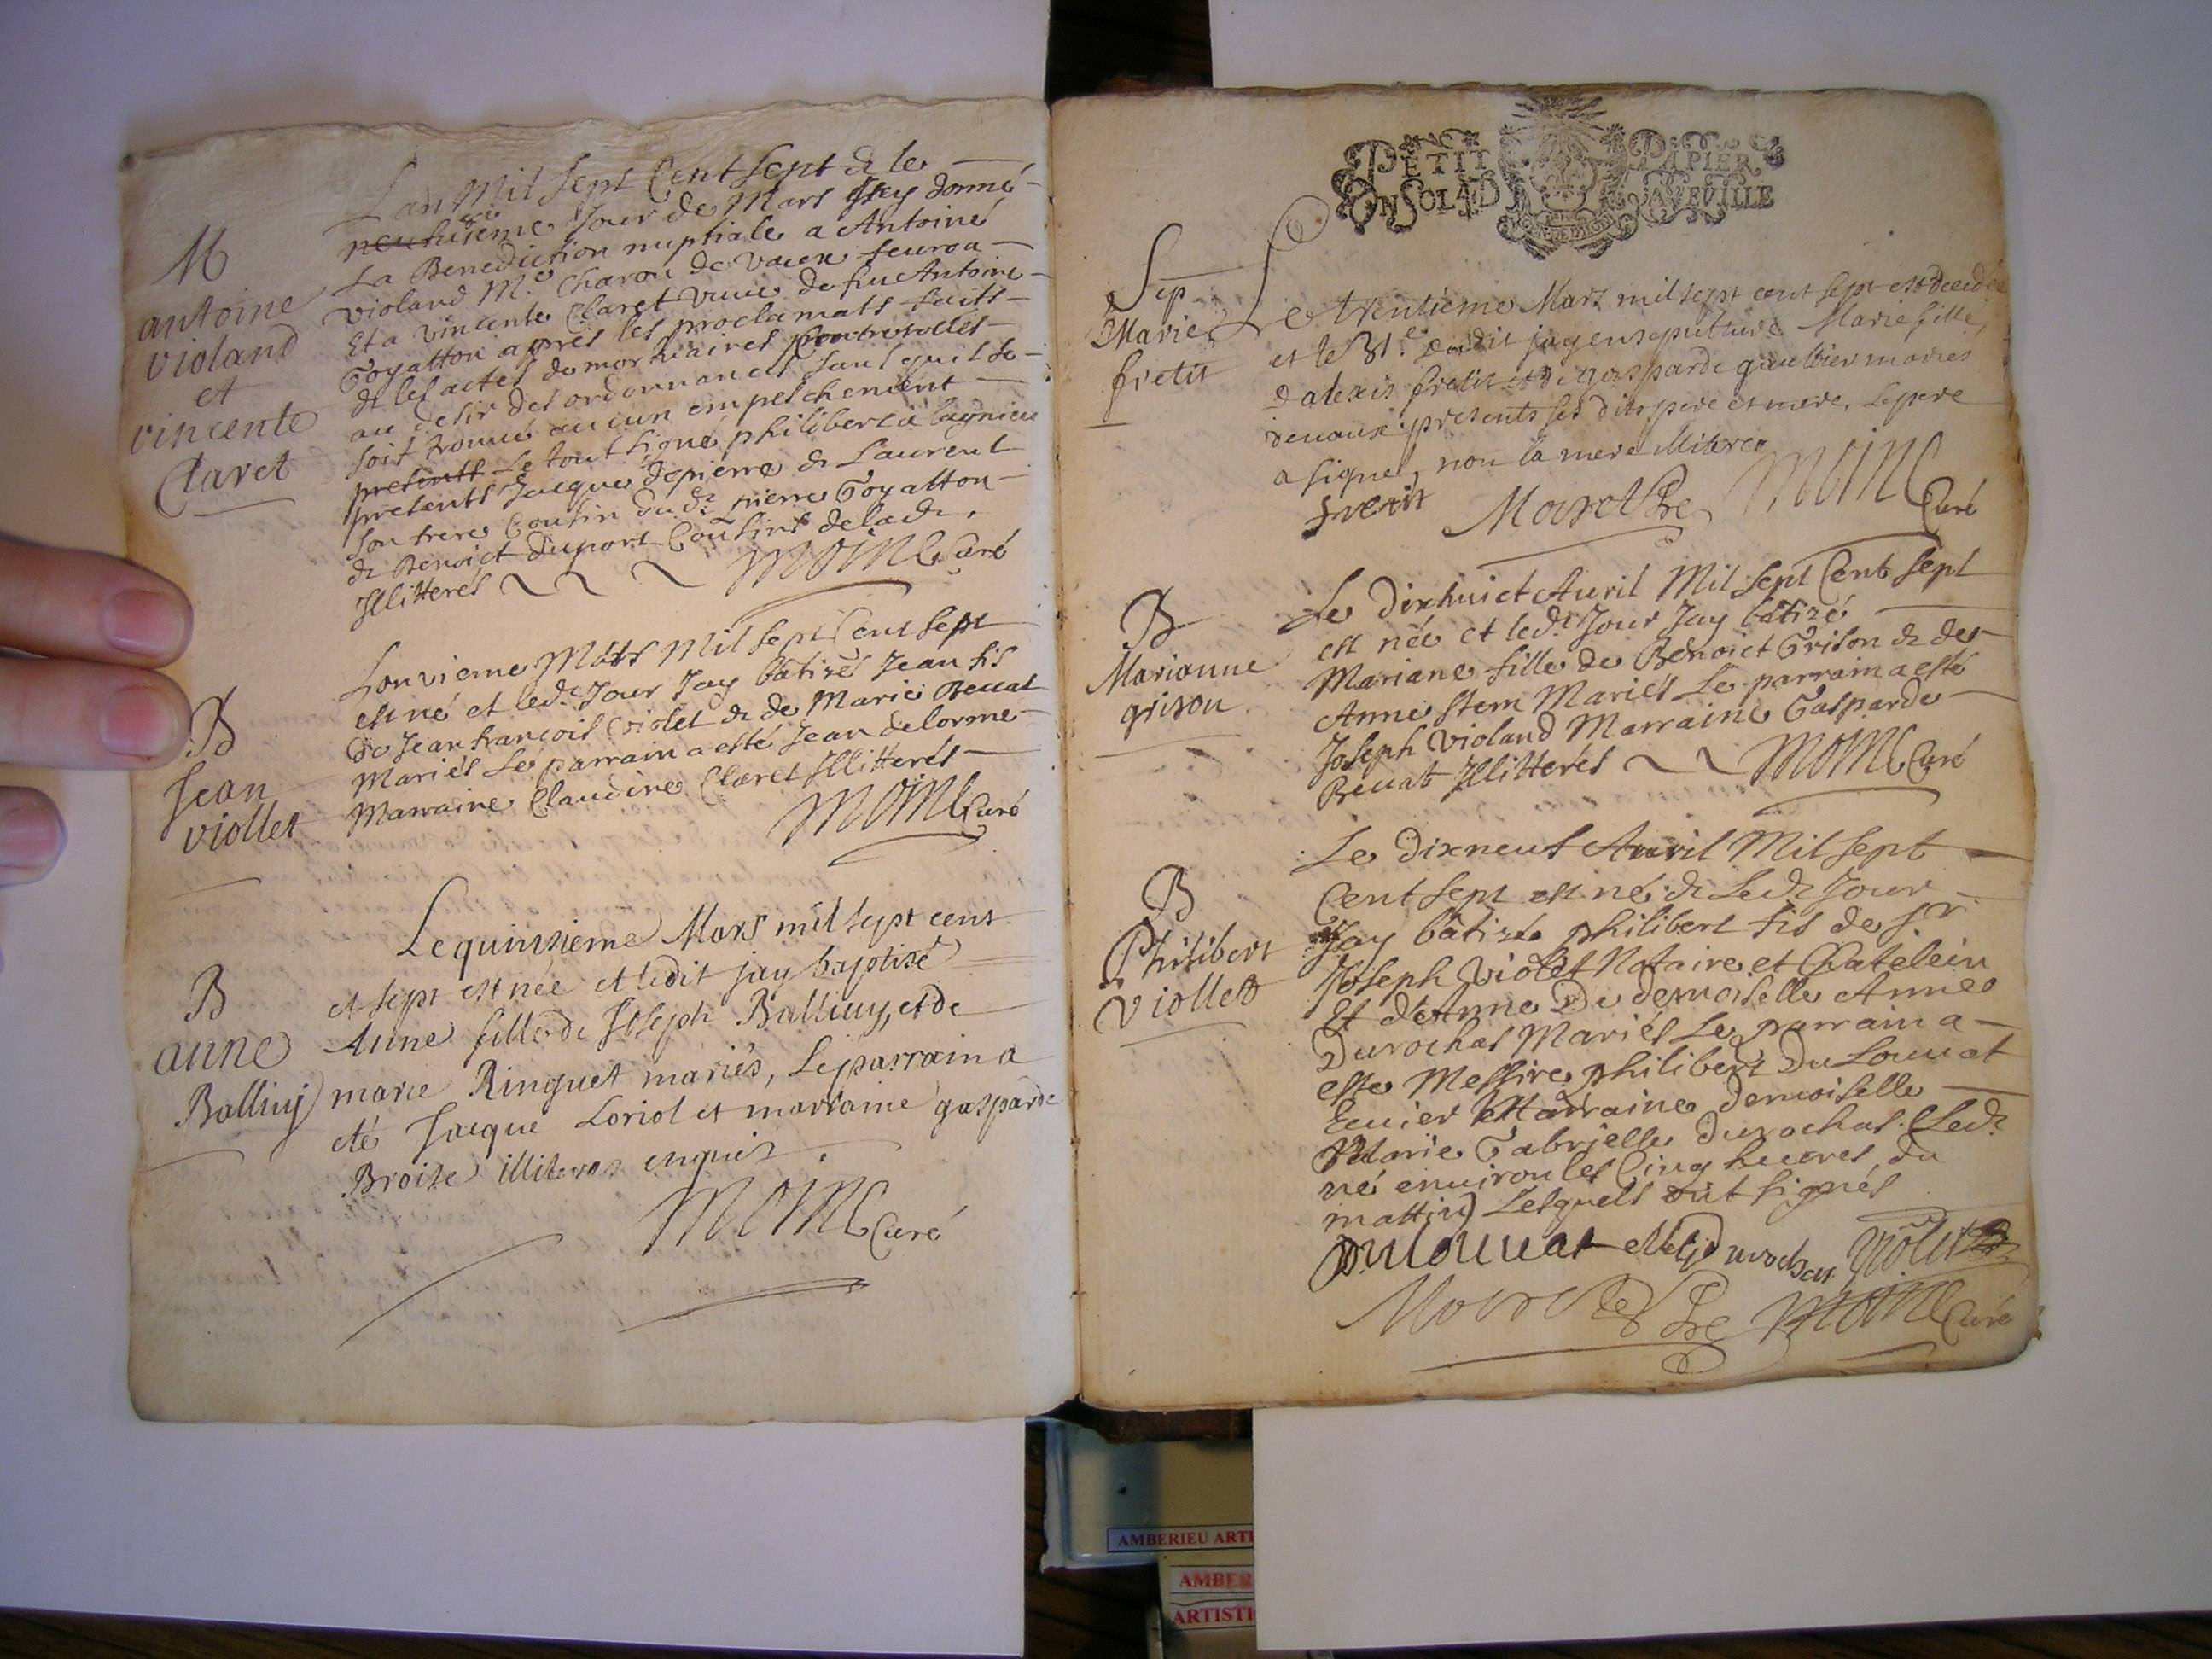 M
antoine
violand
et
vincente
Claret
Lan Mil sept Cent sept & le
huitieme Jour de Mars Jay donné
La Benediction nuptiale a Antoine
violand M.e Charon de vaux feurra
Et a vincente Claret vuue de feu Antoine
Goyatton apprés les proclamats faits
& les actes de mortuaires Controrollés
au desir des ordonnances sans quil se
soit trouué aucun empeschement
presents Le tout signé philibert a lagnieu
presents Jacque depierre & Laurent
son frere Cousin dud.t pierre Goyatton
& Benoict duport Cousins de lad.e
Jllitterés
Moine Curé
B
Jean
viollet
Lonvieme Mars Mil sept Cent sept
est né et led.t Jour Jay batizé Jean fis
de Jean francois violet & de Marie Beuat
Mariés Le parrain a esté Jean delorme
Marraine Claudine Claret Jllitterés
Moine Curé
B
anne
Balliuy
Le quinzieme Mars mil sept cent
et sept est née et ledit jay baptisé
Anne fille de Joseph Balliuy, et de
marie Ringuet mariés, Le parrain a
eté Jacque Loriol et marraine gasparde
Broise illiteres enquis.
Moine Curé
PETIT PAPIER
ON SOL 4 D LA FEUILLE
Sep.
Marie
fretit
Le trentieme Mars mil sept cent sept est decedée
et le 31.e dudit jay ensepulturé Marie fille,
d'alexis fretit et de gasparde gaultier mariés
presents ses dits pere et mere, Le pere
a signé, non la mere illiteree
fretit
Maret Pre
Moine Curé
B
Marianne
grison
Le Dixhuict Auril Mil sept Cent sept
est née et led.t Jour Jay batizé
Mariane fille de Benoict Grison & de
Anne stem Mariés Le parrain a esté
Joseph Violand Marraine Gasparde
Beuat Jllitterés
Moine Curé
B
Philibert
Viollet
Le Dixneuf Auril Mil sept
Cent sept est né & Led.t Jour
Jay batizé philibert fis de s.r
Joseph Violet Notaire et Chatelein
Et d'Anne De demoiselle Anne
Durochat Mariés Le parrain a
esté Messire philibert Du Louuat
Ecuier Marraine demoiselle
Marie Gabrielle Durochat. Led.t
né enuiron les Cinq heures du
mattin) Lesquels ont signés
Dulouuat
Durochat
Violet
Maret Pre
Moine Curé
AMBERIEU ARTI
AMBER
ARTISTI